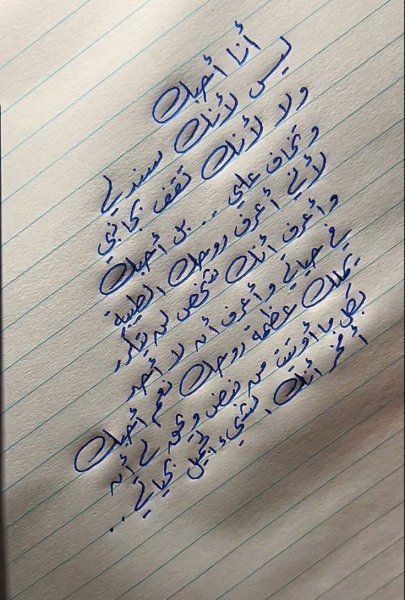 أنا أحبك
ليس لأنك سندي
ولا لأنك تقف بجانبي
وتخاف علي .. بل أحبك
لأني أعرف روحك الطيبة
وأعرف أنك شخص لن يتكرر
في حياتي وأعرف أنه لا أحد
يملك عظمة روحك نعم أحبك
بكل ما أوتيت من نبض ويحق لي أن
أفخر أنك الشيء الجميل بحياتي ..